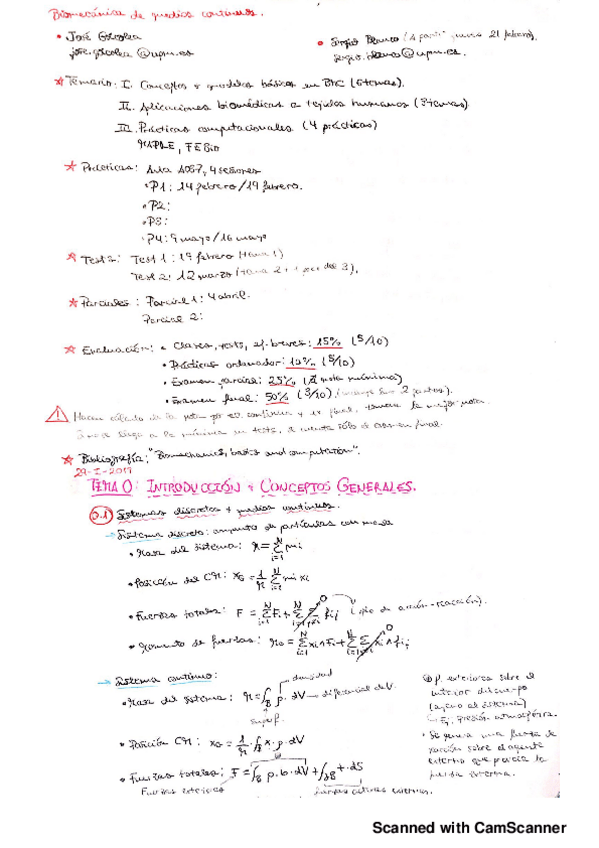 Biomecánica de medios continuos.
• José
@upm.es
• Sergio Blanco (a partir 21 febrero).
sergio.blanco@upm.es.
* Temario: I. Conceptos y modelos básicos en BMC (6 temas).
II. Aplicaciones biomédicas a tejidos humanos (3 temas)
III. Prácticas computacionales (4 prácticas)
MAPLE, FEBio
* Prácticas: Aula 1037, 4 sesiones
• P1: 14 febrero / 19 febrero.
• P2:
• P3:
• P4: 9 mayo / 16 mayo
* Tests: Test 1: 19 febrero (tema 1)
Test 2: 12 marzo (tema 2 + del 3).
* Parciales: Parcial 1: 4 abril.
Parcial 2:
* Evaluación: • Clases, tests, ej. breves: 15% (5/10)
• Prácticas ordenador: 10% (5/10)
• Examen parcial: 25% (nota mínima)
• Examen final: 50% (3/10) 2 partes).
Hacen cálculo de la nota por ev. continua y ex. final, la mejor nota.
a la mínima en tests, cuenta sólo el examen final.
* Bibliografía: "Biomechanics, basics and computation".
29-I-2019
TEMA 0: INTRODUCCIÓN Y CONCEPTOS GENERALES.
0.1 Sistemas discretos y medios continuos.
→ Sistema discreto: conjunto de partículas con masa
• Masa del sistema: M = Σ mi
• Posición del CM: xG = 1/M Σ mi xi
• Fuerzas totales: F = Σ Fi + Σ Σ fij (ppio de acción-reacción).
• Momento de fuerzas: MO = Σ xi ∧ Fi + Σ Σ xi ∧ fij
→ Sistema continuo:
densidad
• Masa del sistema: M = ∫B ρ · dV diferencial de V.
• Posición CM: xG = 1/M · ∫B x · ρ · dV
• Fuerzas totales: F = ∫B ρ · b · dV + ∫∂B t · dS
Fuerzas exteriores
F. exteriores sobre el
interior del cuerpo
(ajeno al sistema)
Ej: presión atmosférica.
• Se genera una fuerza de
reacción sobre el agente
externo que ejercía la
fuerza externa.
Scanned with CamScanner